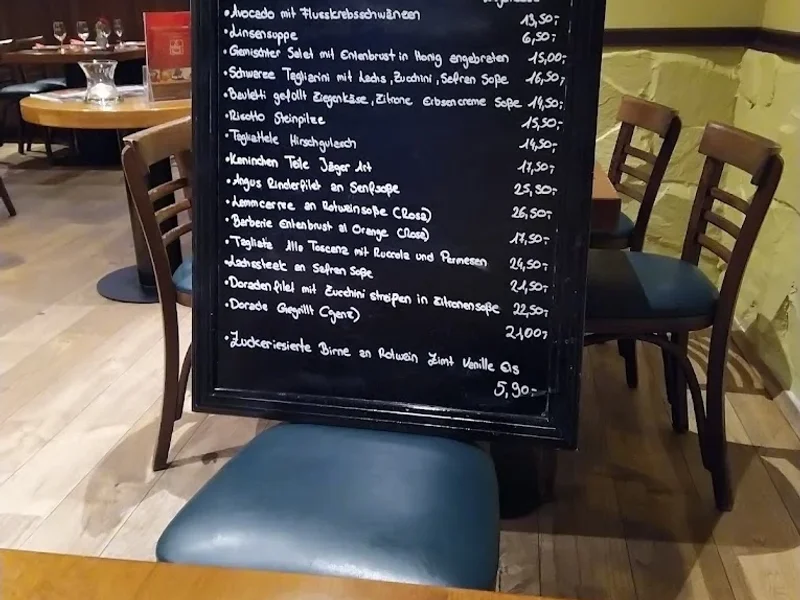 •Avocado mit Flusskrebsschwänzen 13,50;
•Linsensuppe 6,50;
•Gemischter Salat mit Entenbrust in Honig angebraten 15,00;
•Schwarze Tagliarini mit Lachs, Zucchini, Safran Soße 16,50;
•Bauletti gefüllt Ziegenkäse, Zitrone Erbsencreme Soße 14,50;
•Risotto Steinpilze 15,50;
•Tagliattele Hirschgulasch 14,50;
•Kaninchen Teile Jäger Art 17,50;
•Angus Rinderfilet an Senfsoße 25,50;
•Lammcarree an Rotweinsoße (Rosa) 26,50;
•Barberie Entenbrust al Orange (Rosa) 17,50;
•Tagliata Alla Toscana mit Ruccola und Parmesan 24,50;
•Lachssteak an Safran Soße 21,50;
•Doradenfilet mit Zucchini streifen in Zitronensoße 22,50;
•Dorade Gegrillt (ganz) 21,00;
•Zuckeriesierte Birne an Rotwein Zimt Vanille Eis
5,90-